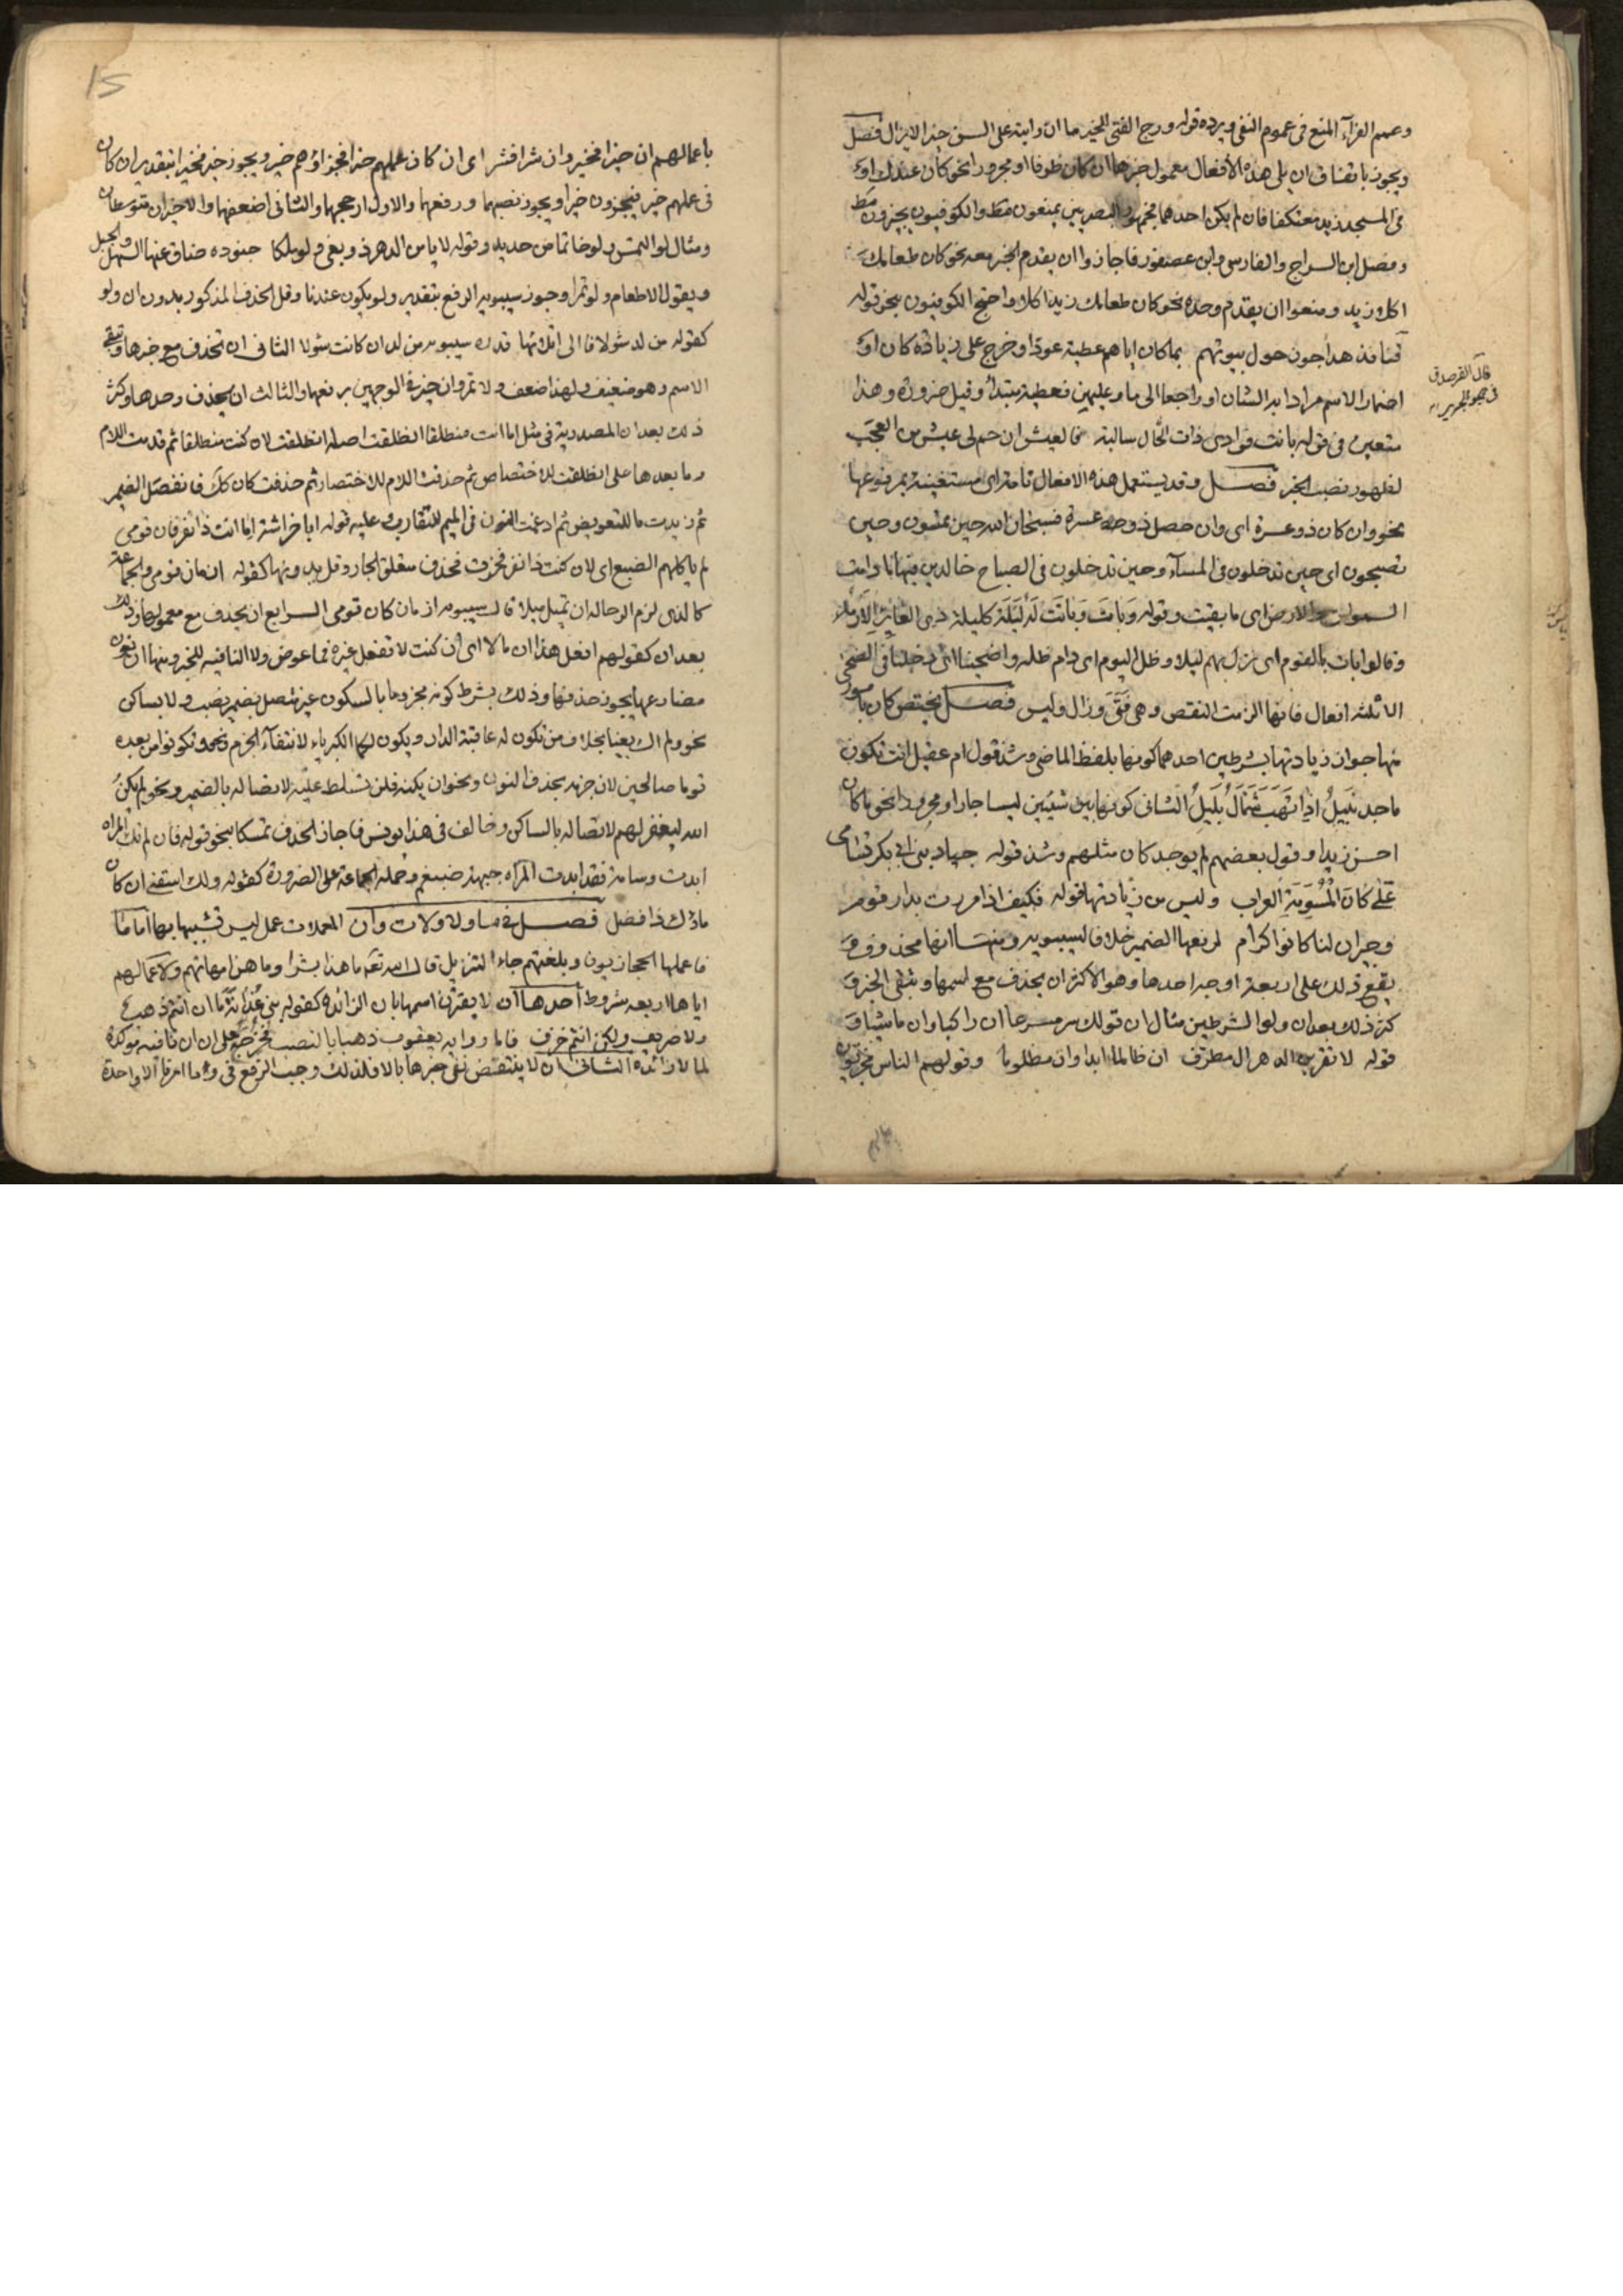 وعمم الفرآء المنع فى عموم النفى ويرده قوله ورج الفتى للخير ما ان رايته على السن خيرا لا يزال فصل
ويجوز باتفاق ان يلى هذه الأفعال معمول خبرها ان كان ظرفا او مجرورا نحو كان عندك او
فى المسجد زيد معتكفا فان لم يكن احدهما فجمهور البصريين يمنعون مط والكوفيون يجيزون مط
وفصل ابن السراج والفارسى وابن عصفور فاجازوا ان يقدم الخبر معه نحو كان طعامك
اكلا زيد ومنعوا ان يقدم وحده نحو كان طعامك زيد اكلا واحتج الكوفيون بنحو قوله
قنافذ هداجون حول بيوتهم بما كان اياهم عطية عودا وخرج على زيادة كان او
اضمار الاسم مرادا به الشان او راجعا الى ما وعليهن فعطية مبتدأ وقيل ضرورة وهذا
متعين فى قوله باتت فوادى ذات الخال سالبة فالعيش ان حم لى عيش من العجب
لظهور نصب الخبر فصل وقد يستعمل هذه الافعال تامة اى مستغنية بمرفوعها
نحو وان كان ذو عسرة اى وان حصل ذو عسرة فسبحان الله حين تمسون وحين
تصبحون اى حين تدخلون فى المسآء وحين تدخلون فى الصباح خالدين فيها ما دامت
السموات والارض اى ما بقيت وقوله وبات وباتت له ليلة كليلة ذى العائر الارمد
وقالوا بات بالقوم اى نزل بهم ليلا وظل اليوم اى دام ظله واضحينا اى دخلنا فى الضحى
الا ثلثة افعال فانها الزمت النقص وهى فتئ وزال وليس فصل يختص كان بامور
منها جواز زيادتها بشرطين احدهما كونها بلفظ الماضى وشذ قول ام عقيل انت تكون
ماجد نبيل اذا تهب شمأل بليل الثانى كونها بين شيئين ليسا جارا ومجرورا نحو ما كان
احسن زيدا وقول بعضهم لم يوجد كان مثلهم وشذ قوله جياد بنى ابى بكر تسامى
على كان المسومة العراب وليس من زيادتها قوله فكيف اذا مررت بدار قوم
وجيران لنا كانوا كرام لرفعها الضمير خلافا لسيبويه ومنها انها تحذف و
يقع ذلك على اربعة اوجه احدها وهو الاكثر ان يحذف مع اسمها ويبقى الخبر و
كثر ذلك بعد ان ولو الشرطيتين مثال ان قولك سر مسرعا ان راكبا وان ماشيا و
قوله لا تقربن الدهر ال مطرف ان ظالما ابدا وان مظلوما وقولهم الناس مجزيون
قال الفرصدق
فى هجو الجرير
باعمالهم ان خيرا فخير وان شرا فشر اى ان كان عملهم خيرا فجزاؤهم خير ويجوز خير فخيرا بتقدير ان كان
فى عملهم خير فيجزون خيرا ويجوز نصبهما ورفعهما والاول ارجحها والثانى اضعفها والاخيران متوسطان
ومثال لو التمس ولو خاتما من حديد وقوله لا يامن الدهر ذو بغى ولو ملكا جنوده ضاق عنها السهل والجبل
ويقول الاطعام ولو تمرا وجوز سيبويه الرفع بتقدير ولو يكون عندنا وقل الحذف المذكور بدون ان ولو
كقوله من لد شولا فالى اتلائها قدره سيبويه من لد ان كانت شولا الثانى ان تحذف مع خبرها ويبقى
الاسم وهو ضعيف ولهذا ضعف ولو تمر وان خير فى الوجهين برفعها والثالث ان يحذف وحدها وكثر
ذلك بعد ان المصدرية فى مثل اما انت منطلقا انطلقت اصله انطلقت لان كنت منطلقا ثم قدمت اللام
وما بعدها على انطلقت للاختصاص ثم حذفت اللام للاختصار ثم حذفت كان كك فانفصل الضمير
ثم زيدت ما للتعويض ثم ادغمت النون فى الميم للتقارب وعليه قوله ابا خراشة اما انت ذا نفر فان قومى
لم ياكلهم الضبع اى لان كنت ذا نفر فخرت فحذف متعلق الجار وقل بدونها كقوله ازمان قومى والجماعة
كالذى لزم الرحالة ان تميل مميلا قال سيبويه ازمان كان قومى الرابع ان يحذف مع معموليها وذلك
بعد ان كقولهم افعل هذا ان ما لا اى ان كنت لا تفعل غيره فما عوض ولا النافيه للخبر ومنها ان نون
مضارعها يجوز حذفها وذلك بشرط كونه مجزوما بالسكون غير متصل بضمير نصب ولا بساكن
نحو ولم اك بغيا بخلاف من تكون له عاقبة الدار ويكون لكما الكبرياء لانتفآء الجزم وتكونوا من بعده
قوما صالحين لان جزمه بحذف النون ونحو ان يكنه فلن تسلط عليه لاتصاله بالضمير ونحو لم يكن
الله ليغفر لهم لاتصاله بالساكن وخالف فى هذا يونس فاجاز الحذف تمسكا بنحو قوله فان لم تك المراه
ابدت وسامة فقد ابدت المرآه جبهة ضيغم وحمله الجماعة على الضرورة كقوله ولك اسقنى ان كان
ماؤك ذا فضل فصل فى ما ولا ولات وان المعملات عمل ليس تشبيها بها اما ما
فاعملها الحجازيون وبلغتهم جاء التنزيل قال الله تعه ما هذا بشرا وما هن امهاتهم ولاعمالهم
اياها اربعه شروط احدها ان لا يقترن اسمها بان الزائده كقوله بنى غدانة ما ان انتم ذهب
ولا صريف ولكن انتم خزف فاما روايه يعقوب ذهبا بالنصب فمخرجة على ان ان نافيه موكدة
لما لا زائده الثانى ان لا ينتقض نفى خبرها بالا فلذلك وجب الرفع فى وما امرنا الا واحدة